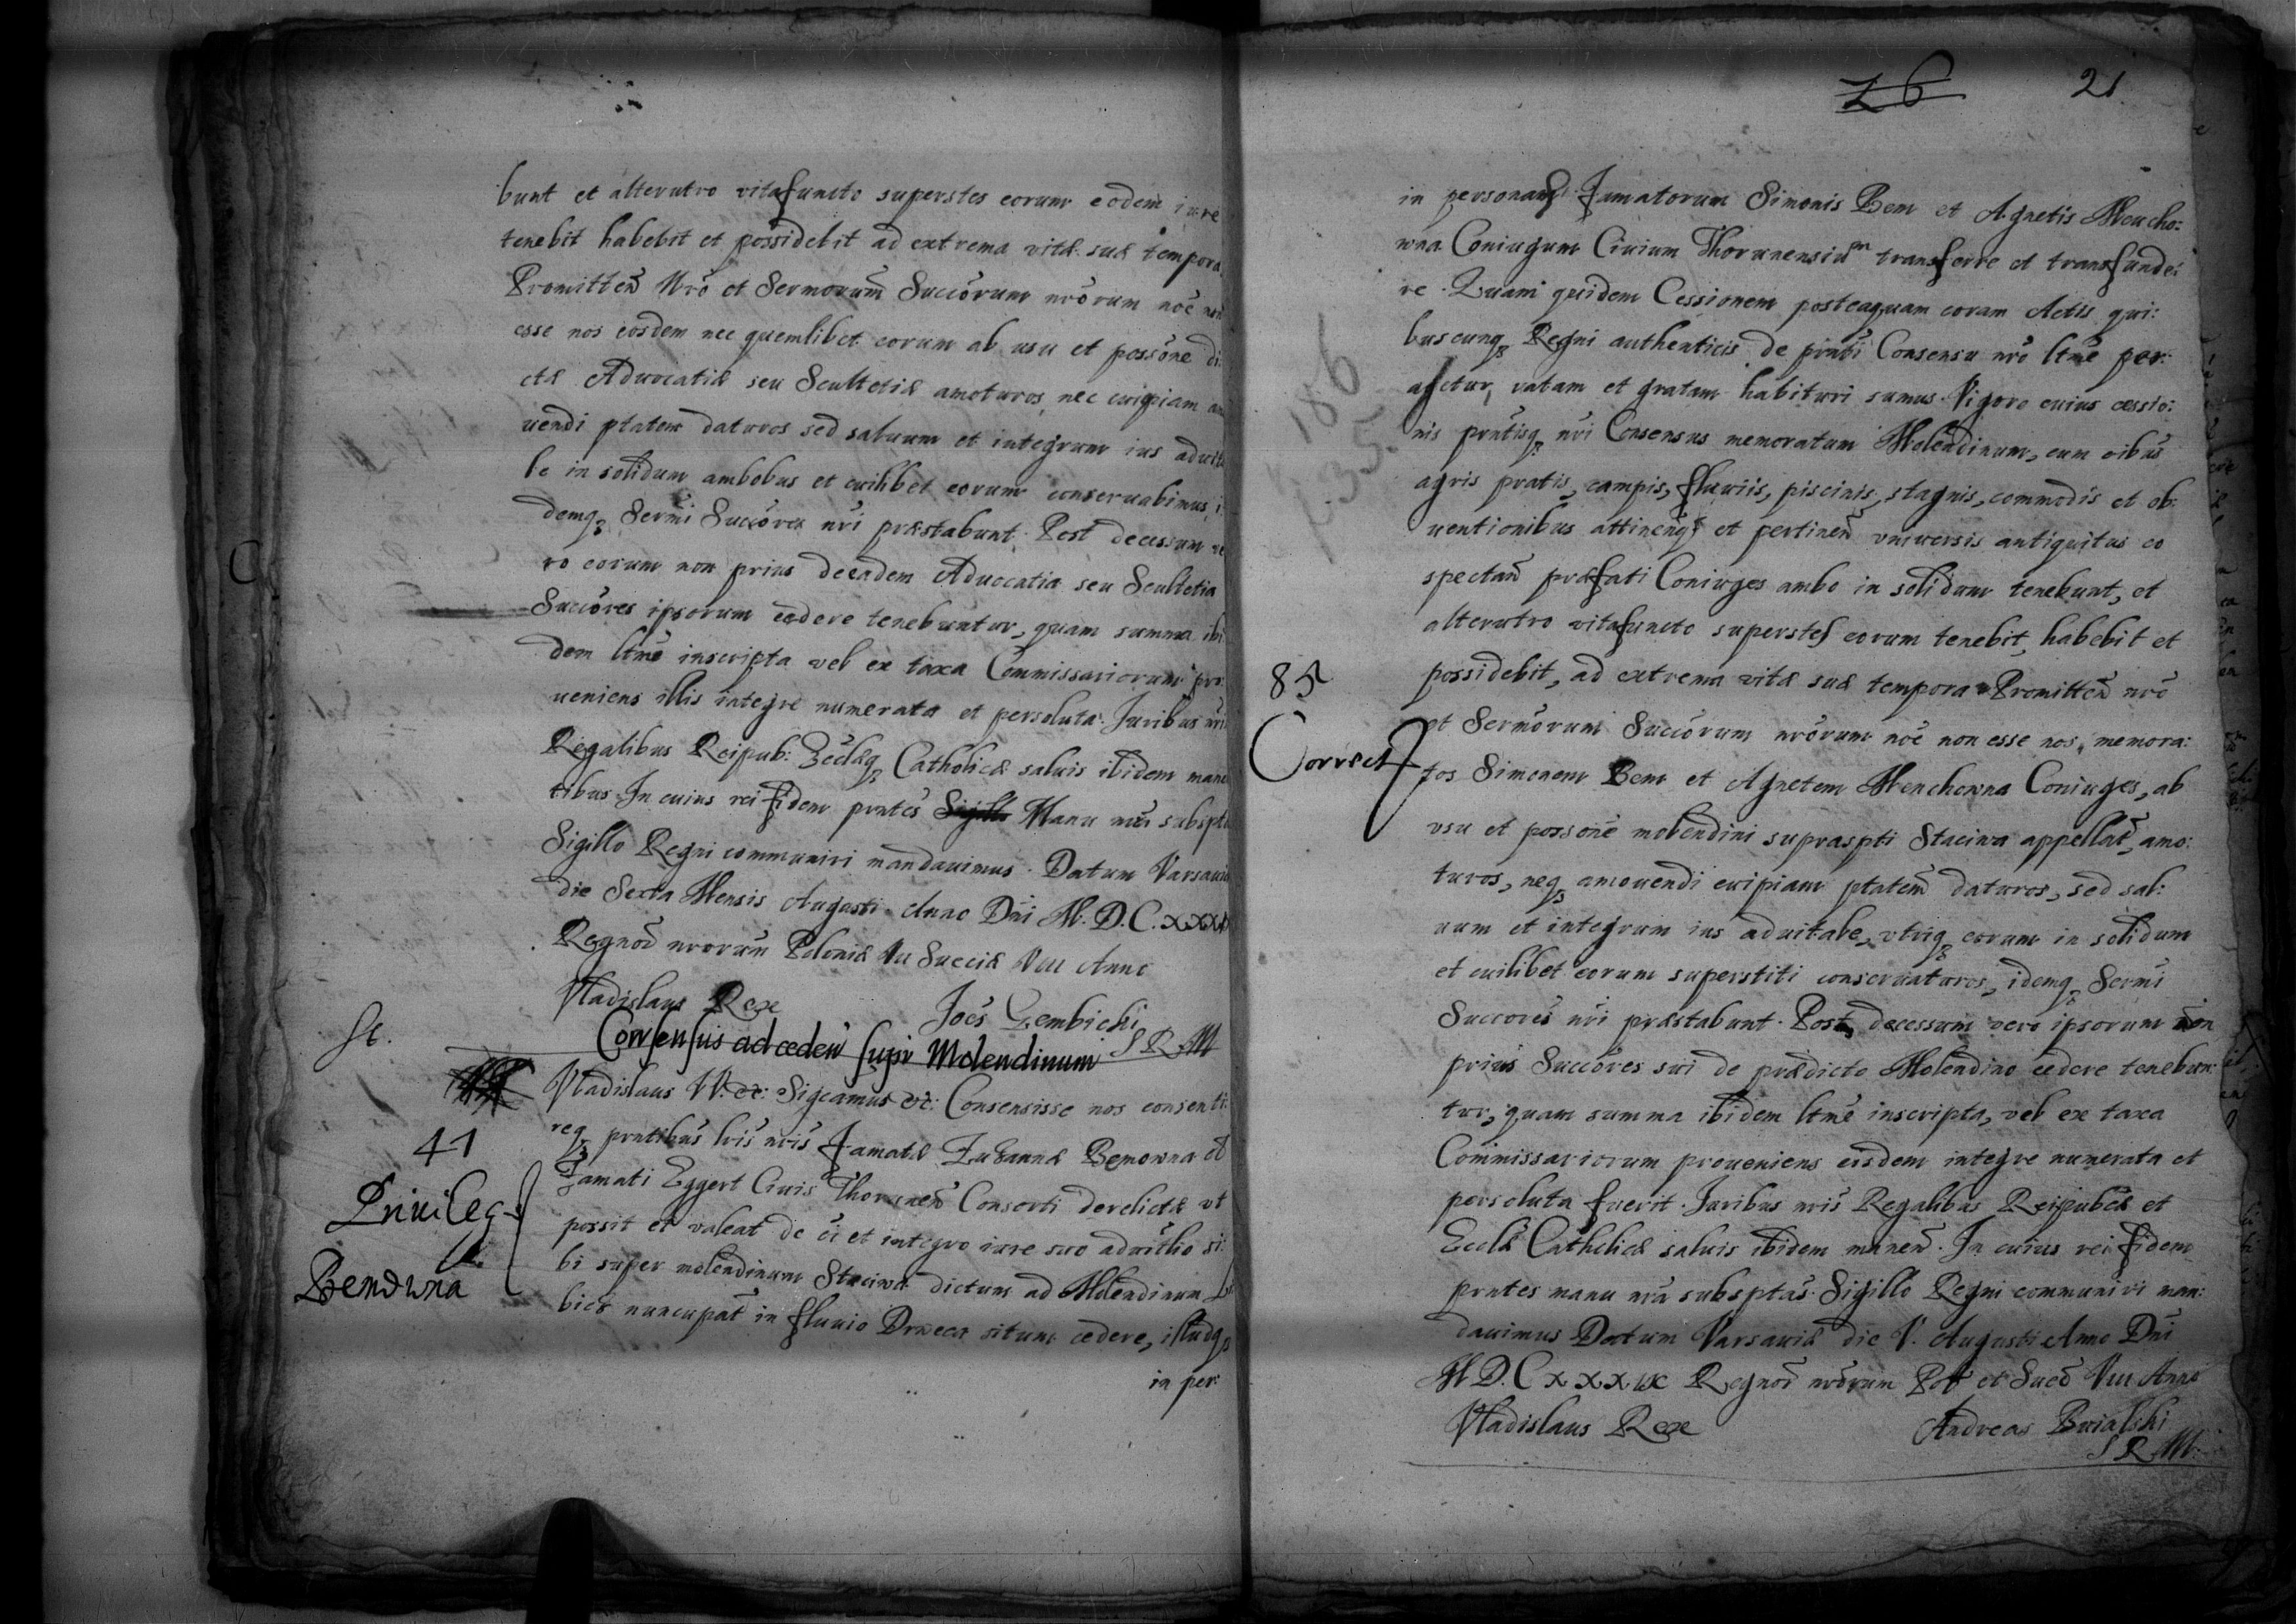 bunt et alterutro vitafuncto superstes eorum eodem iure
tenebit habebit et possidebit ad extrema vitæ suæ tempora
Promitteñ Nrõ et Sermorum̃ Succõrum nrõrum noẽ non
esse nos eosdem nec quemlibet eorum ab usu et possõne di:
ctæ Advocatiæ seu Scultetiæ amoturos nec cuipiam amo
uendi ptatem daturos sed saluum et integrum ius advita
le in solidum ambobus et cuilibet eorum conseruabimus, i
demq₃ Sermĩ Succõres nri præstabunt. Post decessum ve
ro eorum non prius de eadem Advocatia seu Scultetia
Succõres ipsorum cedere tenebuntur, quam summa ibi
dem ltmẽ inscripta vel ex taxa Commissariorum pro:
ueniens illis integre numerata et persoluta. Juribus nrĩs
Regalibus Reipub: Ecclæq₃ Catholicæ saluis ibidem manen
tibus. In cuius rei fidem pntẽs Manu nrã subsptas
Sigillo Regni communiri mandauimus. Datum Varsauiæ
die Sexta Mensis Augusti Anno Dñi M.D.C.XXXIX
Regnoȓ nrorum̃ Poloniæ VII Sueciæ VIII Anno
Vladislaus Rex Joẽs Gembicki
S R M
Consensus ad cedeñ supr Molendinum
St.
41
Priuileg
Bemowna
Vladislaus IV. etc: Sigeamus etc: Consensisse nos consenti:
req₃ pntibus lris nrĩs Famatæ Zuzannæ Bemowna
Famati Eggert Ciuis Thoruneñ Consorti derelictæ vt
possit et valeat de et integro iure suo aduitlio si:
bi super molendinum Staciwa dictum ad Molendinum
bicz nuncupat̃ in fluuio Drweca situm cedere, illudq₃
in per:
26 21
in personas Famatorum Simonis Bem et Agnetis Mencho:
wna Coniugum Ciuium Thorunensium transferre et transfunde:
re. Quam quidem Cessionem posteaquam coram Actis qui:
buscunq₃ Regni authenticis de pñti Consensu nrõ ltmẽ per:
agetur, ratam et gratam habituri sumus. Vigore cuius cessio:
nis pntisq₃ nri Consensus memoratum Molendinum, cum oibũs
agris pratis, campis, fluuiis, piscinis, stagnis, commodis et ob:
uentionibus attineñ et pertineñ vniuersis antiquitus eo
spectañ præfati Coniuges ambo in solidum tenebunt, et
alterutro vitafuncto superstes eorum tenebit, habebit et
possidebit, ad extrema vitæ suæ tempora. Promitteñ nrõ
et Sermõrum Succõrum nrõrum noẽ non esse nos, memora:
tos Simonem Bem et Agnetem Menchowna Coniuges, ab
vsu et possonẽ molendini supraspti Staciwa appellat̃, amo:
turos, neq₃ amouendi cuipiam ptatem̃ daturos, sed sal:
uum et integrum ius aduitale, vtriq₃ eorum in solidum
et cuilibet eorum superstiti conseruaturos, idemq₃ Sermĩ
Succorẽs nri præstabunt. Post decessum vero ipsorum non
prius Succõres sui de prædicto Molendino cedere tenebun:
tur, quam summa ibidem ltmẽ inscripta, vel ex taxa
Commissariorum proueniens eisdem integre numerata et
persoluta fuerit. Juribus nrĩs Regalibus Reipublcæ et
Eccliæ Catholicæ saluis ibidem maneñ. In cuius rei fidem
pntes manu nrã subsptas Sigillo Regni communiri man:
dauimus Datum Varsauiæ die V. Augusti Anno Dñi
M D. C XXX IX Regnoȓ nrõrum Pol et Sueȓ VIII Anno
Vladislaus Rex Andreas Bwialski
S R M.
186
435.
85
Correct